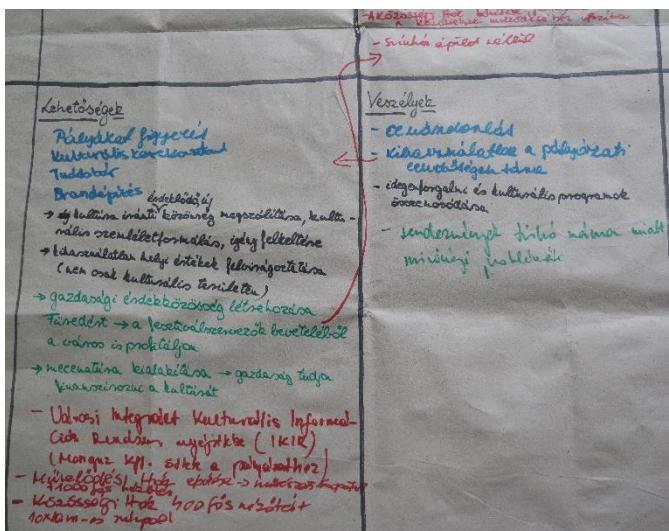 - A Közösségi Ház
- Színház épület nélkül
Lehetőségek
Pályázat figyelés
Kulturális
Tudástár
Brandépítés
érdeklődő, új
→ kultúra iránti közönség megszólítása, kultu-
rális szemléletformálás, igény felkeltése
→ kihasználatlan helyi értékek felvirágoztatása
(nem csak kulturális területen)
→ gazdasági érdekközösség létrehozása
→ a fesztiválszervezők bevételéből
a város is profitáljon
→ mecenatúra kialakítása → gazdaság tudja
finanszírozni a kultúrát
- Városi Integrált Kulturális Informá-
ciós Rendszer (IKIR)
Kft.
- Művelődési Ház építése →
- Közösségi Ház 400 fős nézőtér
10x10m-es
Veszélyek
- elvándorlás
- kihasználatlan a pályázati
lehetőségek
- idegenforgalmi és kulturális programok
összemosódása
- rendezvények száma miatt
minőségi problémák